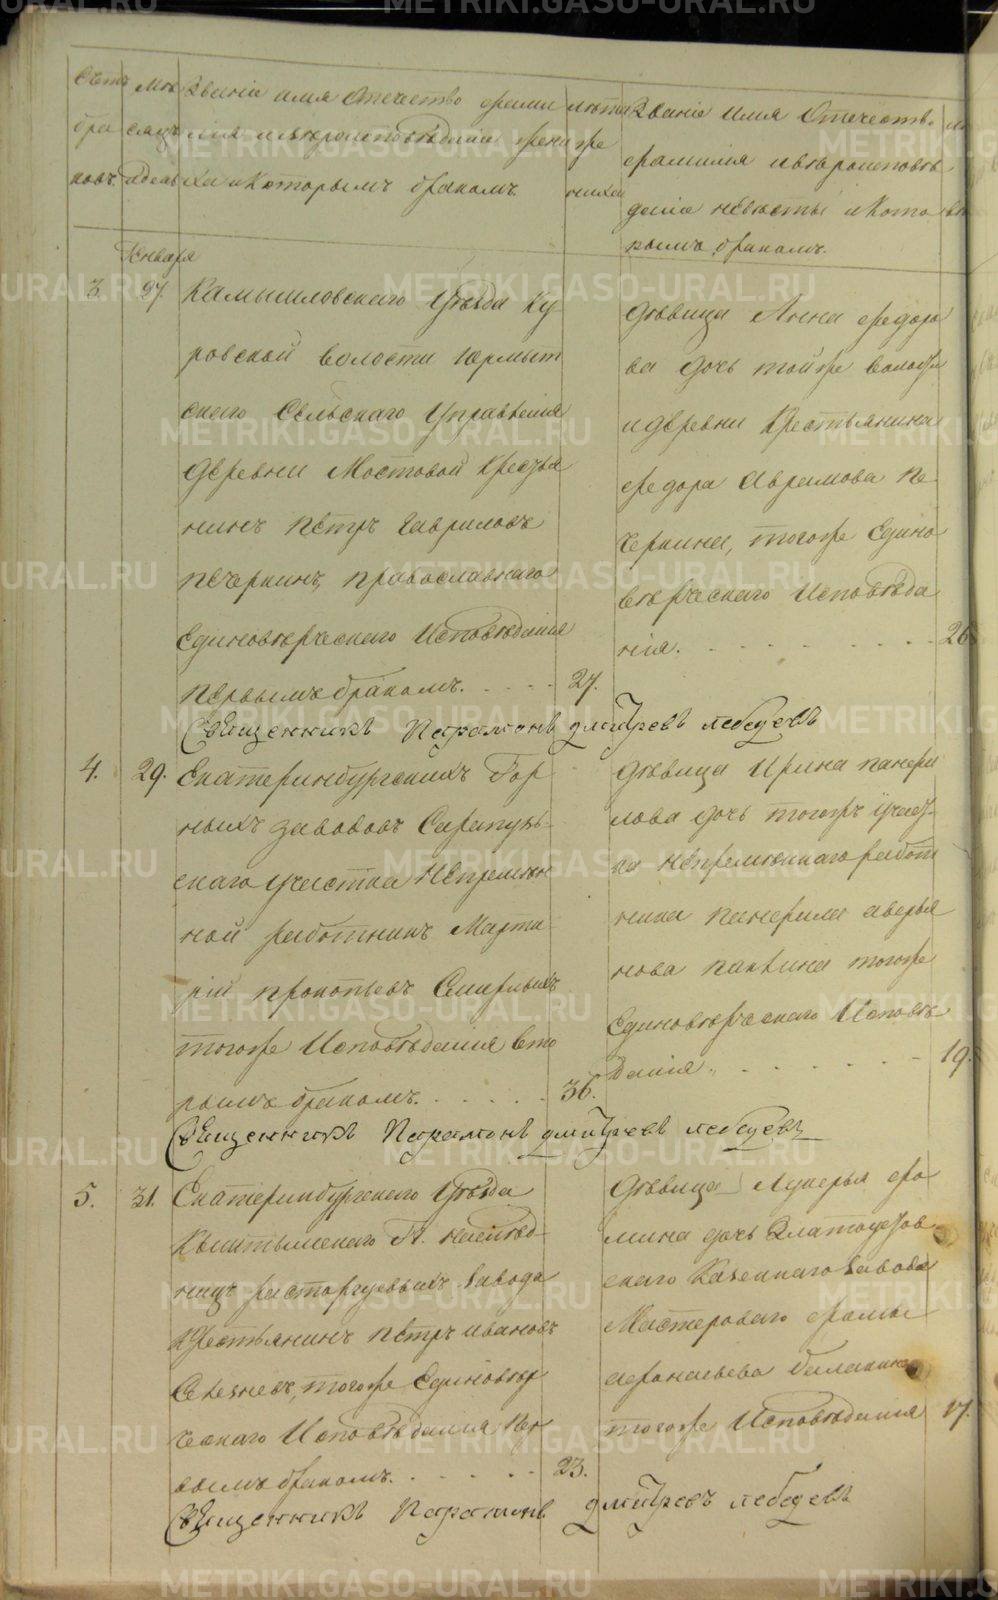 Счетъ бра ковъ.
Мѣсяцъ и день
Званіе имя Отечество фами
лія и вѣроисповѣданіе жени
ха и которымъ бракомъ.
лѣта же
ниха
Званіе Имя Отечество.
фамилія и вѣроисповѣ
даніе невѣсты и кото
рымъ бракомъ.
Января
3. 27. Камышловскаго Уѣзда Ку
ровской волости Юрмыт
скаго Сельскаго Управленія
деревни Мостовой Крестья
нинъ Петръ Гавриловъ
Печеркинъ, православнаго
Единовѣрческаго Исповѣданія
первымъ бракомъ. 27.
Дѣвица Анна Федоро
ва дочь той же волости
и деревни Крестьянина
Федора Аврамова Пе
черкина, того же Едино
вѣрческаго Исповѣда
нія. 26
Священникъ Парамонъ Дмитревъ Лебедевъ
4. 29. Екатеринбургскихъ Гор
ныхъ заводовъ Сарапуль
скаго участка Непремѣн
ной работникъ Марти
рій Прокопьевъ Смирныхъ
того же Исповѣданія вто
рымъ бракомъ. 36.
Дѣвица Ирина Панфи
лова дочь того жъ участ
ка Непремѣннаго работ
ника Панфила Аверья
нова Паклина того же
Единовѣрческаго Исповѣ
данія. 19.
Священникъ Парамонъ Дмитревъ Лебедевъ
5. 31. Екатеринбургскаго Уѣзда
Кыштымскаго Г. наслѣд
ницъ Расторгуевыхъ завода
Крестьянинъ Петръ Ивановъ
Селезневъ, того же Единовѣр
ческаго Исповѣданія пер
вымъ бракомъ. 23.
Дѣвица Лукерья Фо
мина дочь Златоустов
скаго Казеннаго завода
Мастероваго Фомы
Афонасьева Балакина
того же Исповѣданія 17.
Священникъ Парамонъ Дмитревъ Лебедевъ
METRIKI.GASO-URAL.RU